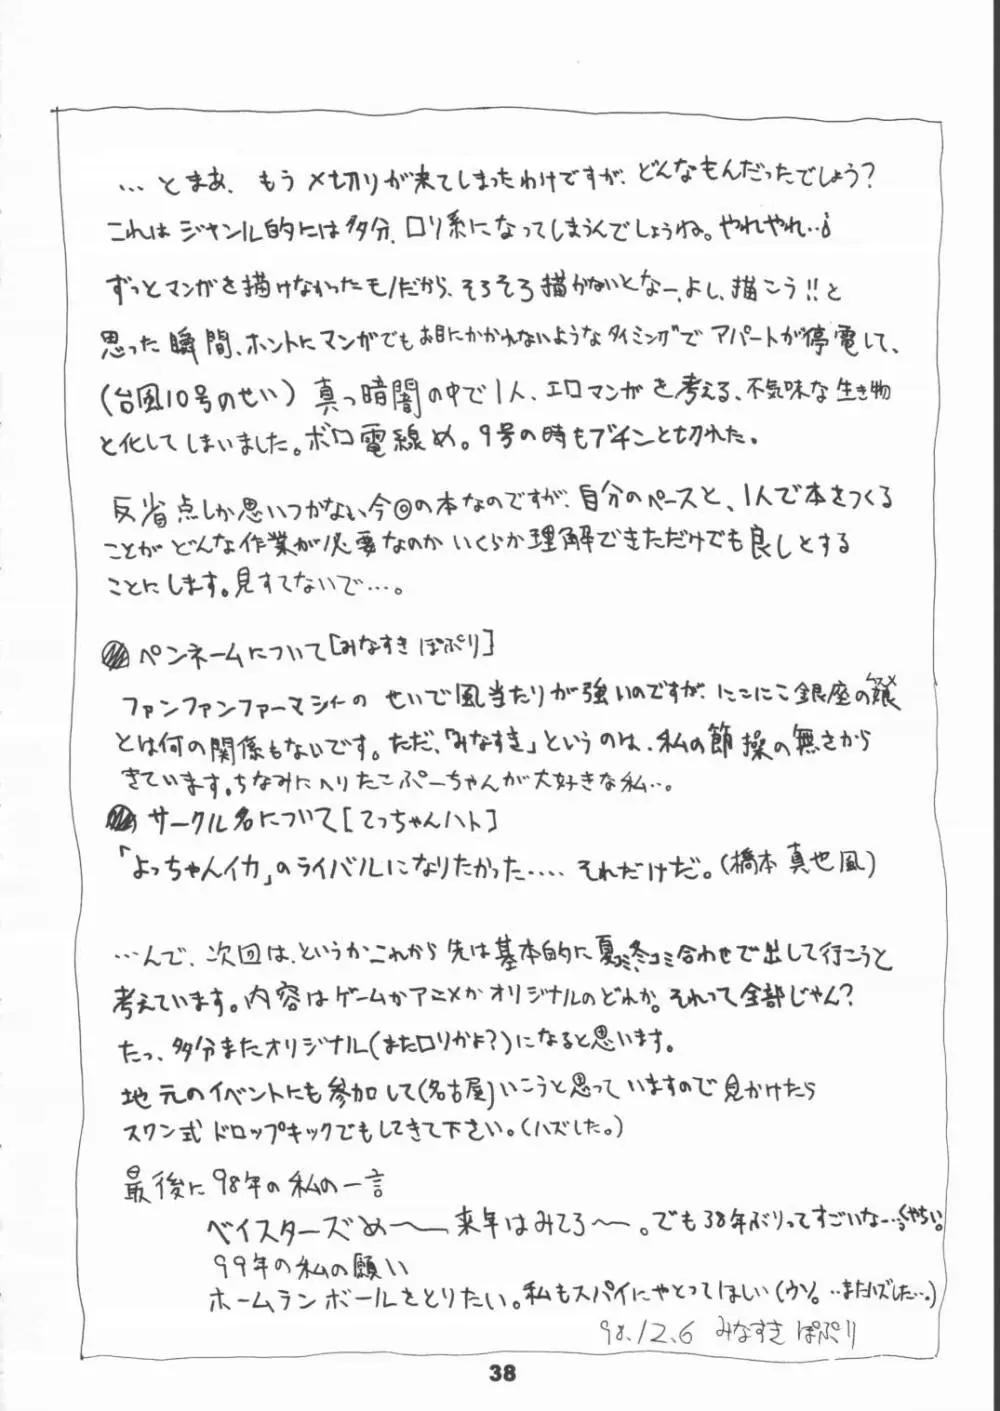 …とまあ、もう〆切りが来てしまったわけですが、どんなもんだったでしょう?
これはジャンル的には多分、ロリ系になってしまうんでしょうね。やれやれ…♪
ずっとマンガを描けなかったモノだから、そろそろ描かないとなー、よし、描こう!!と
思った瞬間、ホントにマンガでもお目にかかれないようなタイミングでアパートが停電して、
(台風10号のせい) 真っ暗闇の中で1人、エロマンガを考える、不気味な生き物
と化してしまいました。ボロ電線め。9号の時もブチンと切れた。
反省点しか思いつかない今回の本なのですが、自分のペースと、1人で本をつくる
ことがどんな作業が必要なのかいくらか理解できただけでも良しとする
ことにします。見すてないで…。
ペンネームについて[みなすき ぽぷり]
ファンファンファーマシィーのせいで風当たりが強いのですが、にこにこ銀座の娘
ムスメ
とは何の関係もないです。ただ、「みなすき」というのは、私の節操の無さから
きています。ちなみにへりたこぷーちゃんが大好きな私…。
サークル名について[てっちゃんハト]
「よっちゃんイカ」のライバルになりたかった....それだけだ。(橋本真也風)
…んで、次回は、というかこれから先は基本的に夏コミ、冬コミ合わせで出して行こうと
考えています。内容はゲームかアニメかオリジナルのどれか。それって全部じゃん?
たっ、多分またオリジナル(またロリかよ?)になると思います。
地元のイベントにも参加して(名古屋)いこうと思っていますので見かけたら
スワン式ドロップキックでもしてきて下さい。(ハズした。)
最後に98年の私の一言
ベイスターズめ〜 来年はみてろ〜。でも38年ぶりってすごいなー…くやちい。
99年の私の願い
ホームランボールをとりたい。私もスパイにやとってほしい(ウソ。…またハズした…。)
98.12.6 みなすき ぽぷり
38